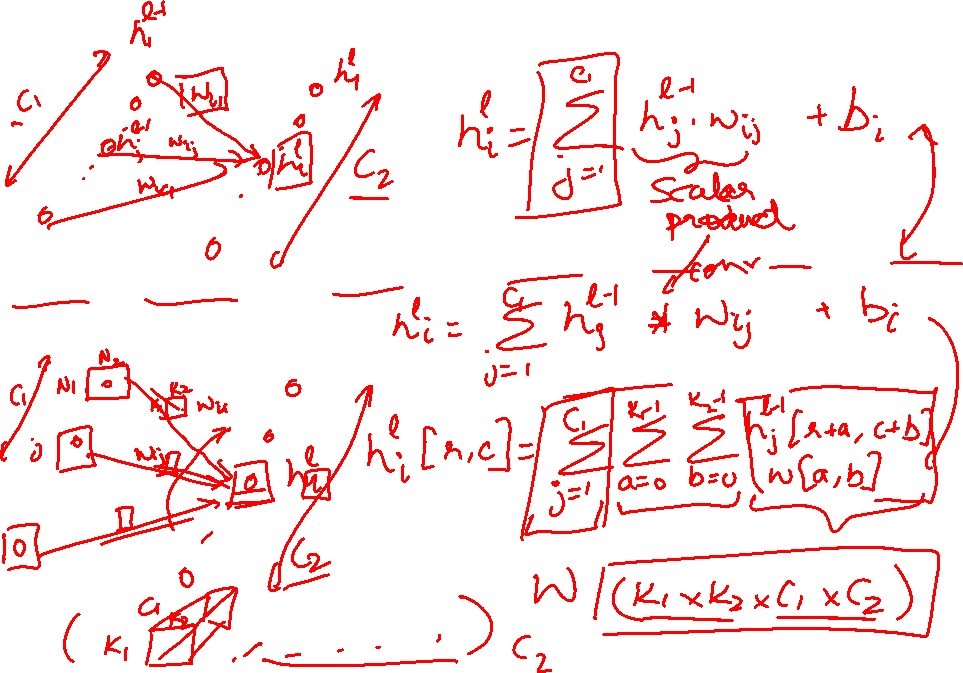 h₁^{l-1}
C₁
w_{i1}
h_j^{l-1}
w_{ij}
h₁^l
h_i^l
C₂
h_i^l = Σ_{j=1}^{C₁} h_j^{l-1} . w_{ij} + b_i
Scalar
product
conv
h_i^l = Σ_{j=1}^{C₁} h_j^{l-1} * w_{ij} + b_i
C₁
N₁
N₂
K₁
K₂
j
w_{ij}
h_i^l
C₂
h_i^l [r,c] = Σ_{j=1}^{C₁} Σ_{a=0}^{K₁-1} Σ_{b=0}^{K₂-1} h_j^{l-1} [r+a, c+b]
w[a,b]
W (K₁ × K₂ × C₁ × C₂)
C₁
K₂
( K₁ . . . . . . . ) C₂